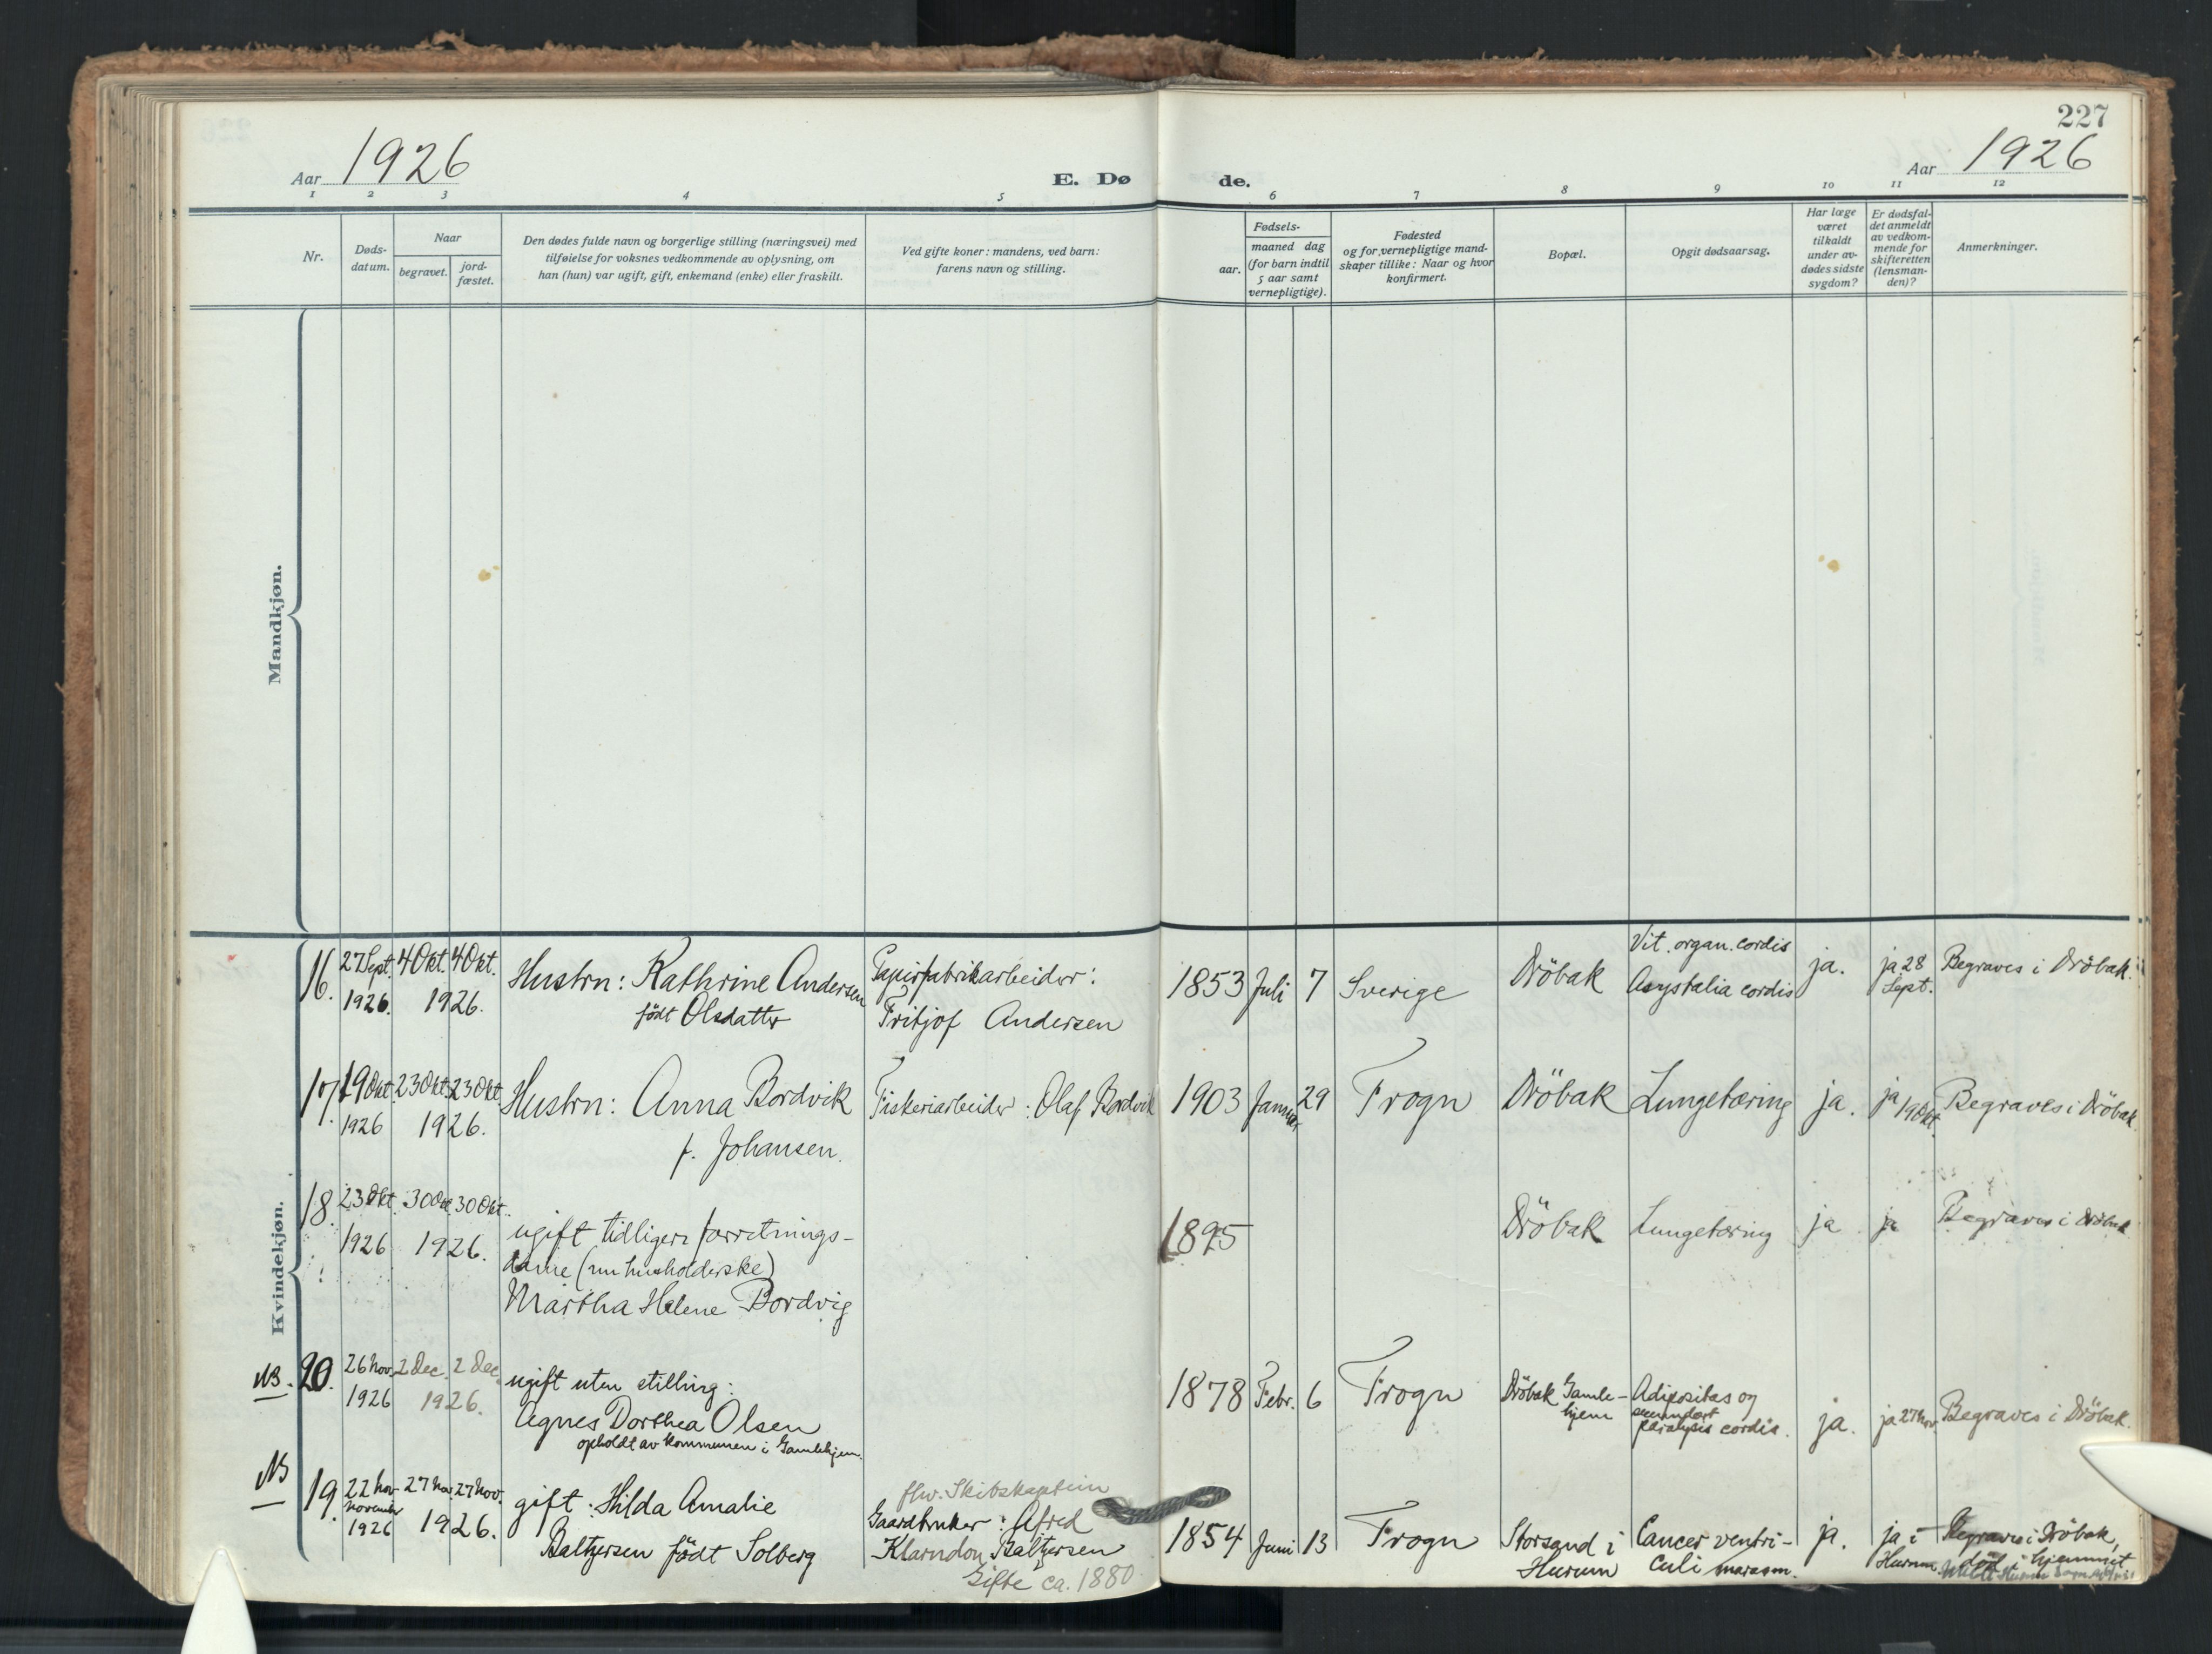 227
Aar 1926
E. Dø de.
Aar 1926
1 2 3 4 5 6 7 8 9 10 11 12
Nr.
Døds-
datum.
Naar
begravet.
jord-
fæstet.
Den dødes fulde navn og borgerlige stilling (næringsvei) med
tilføielse for voksnes vedkommende av oplysning, om
han (hun) var ugift, gift, enkemand (enke) eller fraskilt.
Ved gifte koner: mandens, ved barn:
farens navn og stilling.
Fødsels-
aar.
maaned dag
(for barn indtil
5 aar samt
vernepligtige).
Fødested
og for vernepligtige mand-
skaper tillike: Naar og hvor
konfirmert.
Bopæl.
Opgit dødsaarsag.
Har læge
været
tilkaldt
under av-
dødes sidste
sygdom?
Er dødsfal-
det anmeldt
av vedkom-
mende for
skifteretten
(lensman-
den)?
Anmerkninger.
Mandkjøn.
Kvindekjøn.
16.
27 Sept.
1926.
4 Okt. 4 Okt.
1926.
Hustru: Kathrine Andersen
født Olsdatter
Papirfabrikarbeider:
Fritjof Andersen
1853 Juli 7
Sverige
Dröbak
Vit. organ. cordis
Asystalia cordis
ja.
ja 28
Sept.
Begraves i Dröbak.
17.
19 Okt.
1926
23 Okt. 23 Okt.
1926.
Hustru: Anna Bordvik
f. Johansen.
Fiskeriarbeider: Olaf Bordvik
1903 Januar 29
Frogn
Dröbak
Lungetæring
ja.
ja
19 Okt.
Begraves i Dröbak.
18.
23 Okt.
1926
30 Okt. 30 Okt.
1926.
ugift tidligere forretnings-
dame (nu husholderske)
Martha Helene Bordvig
1895
Dröbak
Lungetæring
ja
ja
Begraves i Dröbak
NB. 20.
26 nov.
1926
2 Dec. 2 Dec.
1926.
ugift uten stilling:
Agnes Dorthea Olsen
opholdt av kommunen i Gamlehjem.
1878 Febr. 6
Frogn
Dröbak Gamle-
hjem
Adipositas og
secundært
paralysis cordis.
ja.
ja 27 nov.
Begraves i Dröbak.
NB
19.
22 nov
november
1926
27 nov. 27 nov.
1926.
gift: Hilda Amalie
Baltzersen født Solberg
fhv. Skibskaptein
Gaardbruker: Alfred
Klarndon Baltzersen
Gifte ca. 1880.
1854 Juni 13
Frogn
Storsand i
Hurum
Cancer ventri-
culi marasm.
ja.
ja i
Hurum.
Begraves i Dröbak,
död i hjemmet